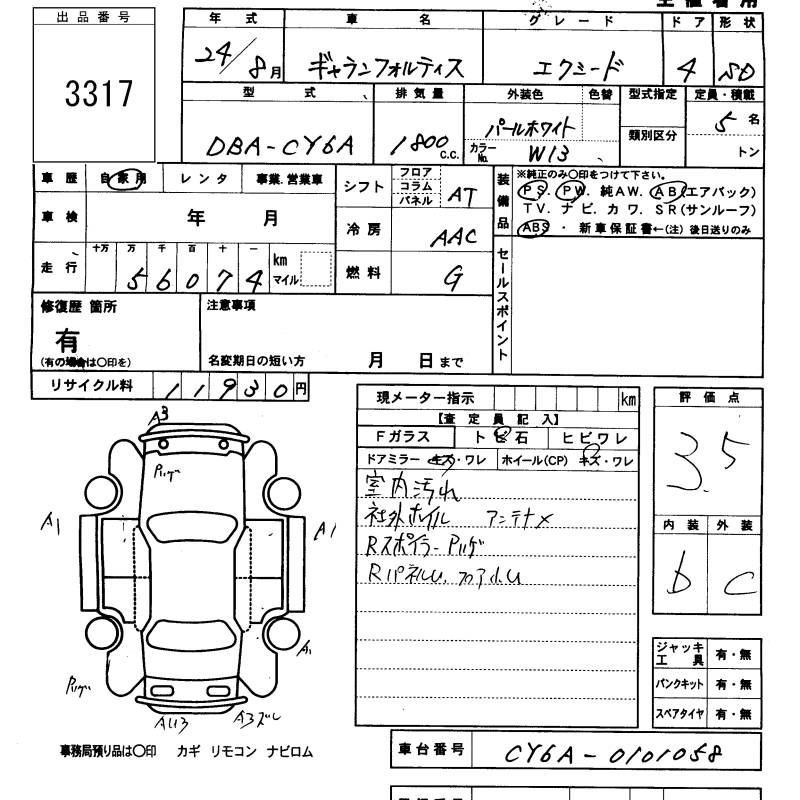 出品番号
3317
年式 車名 グレード ドア 形状
24/8月 ギャランフォルティス エクシード 4 SD
型式 排気量 外装色 色替 型式指定 定員・積載
DBA-CY6A 1800 c.c. パールホワイト 5名
カラーNo. W13 類別区分 トン
車歴 自家用 レンタ 事業.営業車
車検 年 月
走行 十万 万 千 百 十 一
56074 km マイル
シフト フロア コラム パネル AT
冷房 AAC
燃料 G
装備品 ※純正のみ〇印をつけて下さい。
PS. PW. 純AW. AB(エアバック)
TV. ナビ. カワ. SR(サンルーフ)
ABS ・ 新車保証書←(注) 後日送りのみ
セールスポイント
修復歴 箇所 注意事項
有
(有の場合は〇印を) 名変期日の短い方 月 日まで
リサイクル料 11930円
現メーター指示 km
【査定員記入】
Fガラス トビ石 ヒビワレ
ドアミラー キズ・ワレ ホイール(CP) キズ・ワレ
室内汚れ
社外ホイル アンテナメ
Rスポイラー Pハゲ
評価点
3.5
内装 外装
b C
A3
Pハゲ
A1 A1
A1
Pハゲ
A3ズレ
ジャッキ工具 有・無
パンクキット 有・無
スペアタイヤ 有・無
事務局預り品は〇印 カギ リモコン ナビロム
車台番号 CY6A-0101058